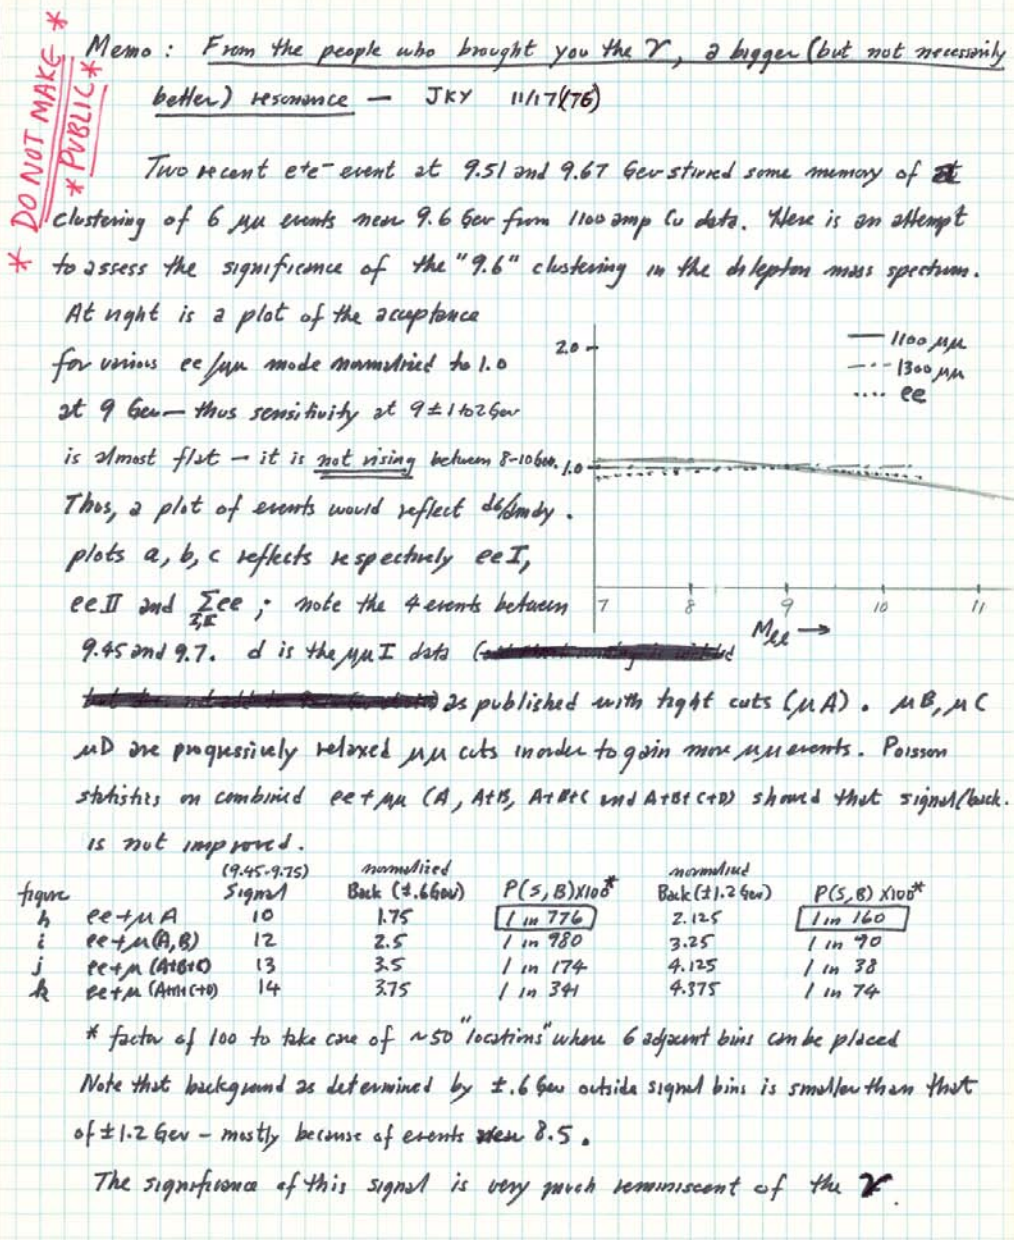 * DO NOT MAKE *
* PUBLIC *
Memo : From the people who brought you the ϒ, a bigger (but not necessarily
better) resonance — JKY 11/17(76)
Two recent e+e- event at 9.51 and 9.67 Gev stirred some memory of a
clustering of 6 μμ events near 9.6 Gev from 1100 amp Cu data. Here is an attempt
to assess the significance of the "9.6" clustering in the dilepton mass spectrum.
At right is a plot of the acceptance
for various ee/μμ mode normalized to 1.0
at 9 Gev — thus sensitivity at 9 ± 1 to 2 Gev
is almost flat — it is not rising between 8-10 Gev.
Thus, a plot of events would reflect dσ/dmdy.
plots a, b, c reflects respectively ee I,
ee II and Σee ; note the 4 events between
I,II
9.45 and 9.7. d is the μμ I data (
2.0
1100 μμ
1300 μμ
ee
1.0
7 8 9 10 11
Mee →
as published with tight cuts (μA). μB, μC
μD are progressively relaxed μμ cuts in order to gain more μμ events. Poisson
statistics on combined ee + μμ (A, A+B, A+B+C and A+B+C+D) showed that signal/back.
is not improved.
(9.45-9.75) normalized normalized
figure Signal Back (±.6Gev) P(S,B)X100* Back (±1.2 Gev) P(S,B) X100*
h ee+μA 10 1.75 1 in 776 2.125 1 in 160
i ee+μ(A,B) 12 2.5 1 in 980 3.25 1 in 90
j ee+μ (A+B+C) 13 3.5 1 in 174 4.125 1 in 38
k ee+μ (A+B+C+D) 14 3.75 1 in 341 4.375 1 in 74
* factor of 100 to take care of ~50 "locations" where 6 adjacent bins can be placed
Note that background as determined by ±.6 Gev outside signal bins is smaller than that
of ±1.2 Gev – mostly because of events near 8.5.
The significance of this signal is very much reminiscent of the ϒ.